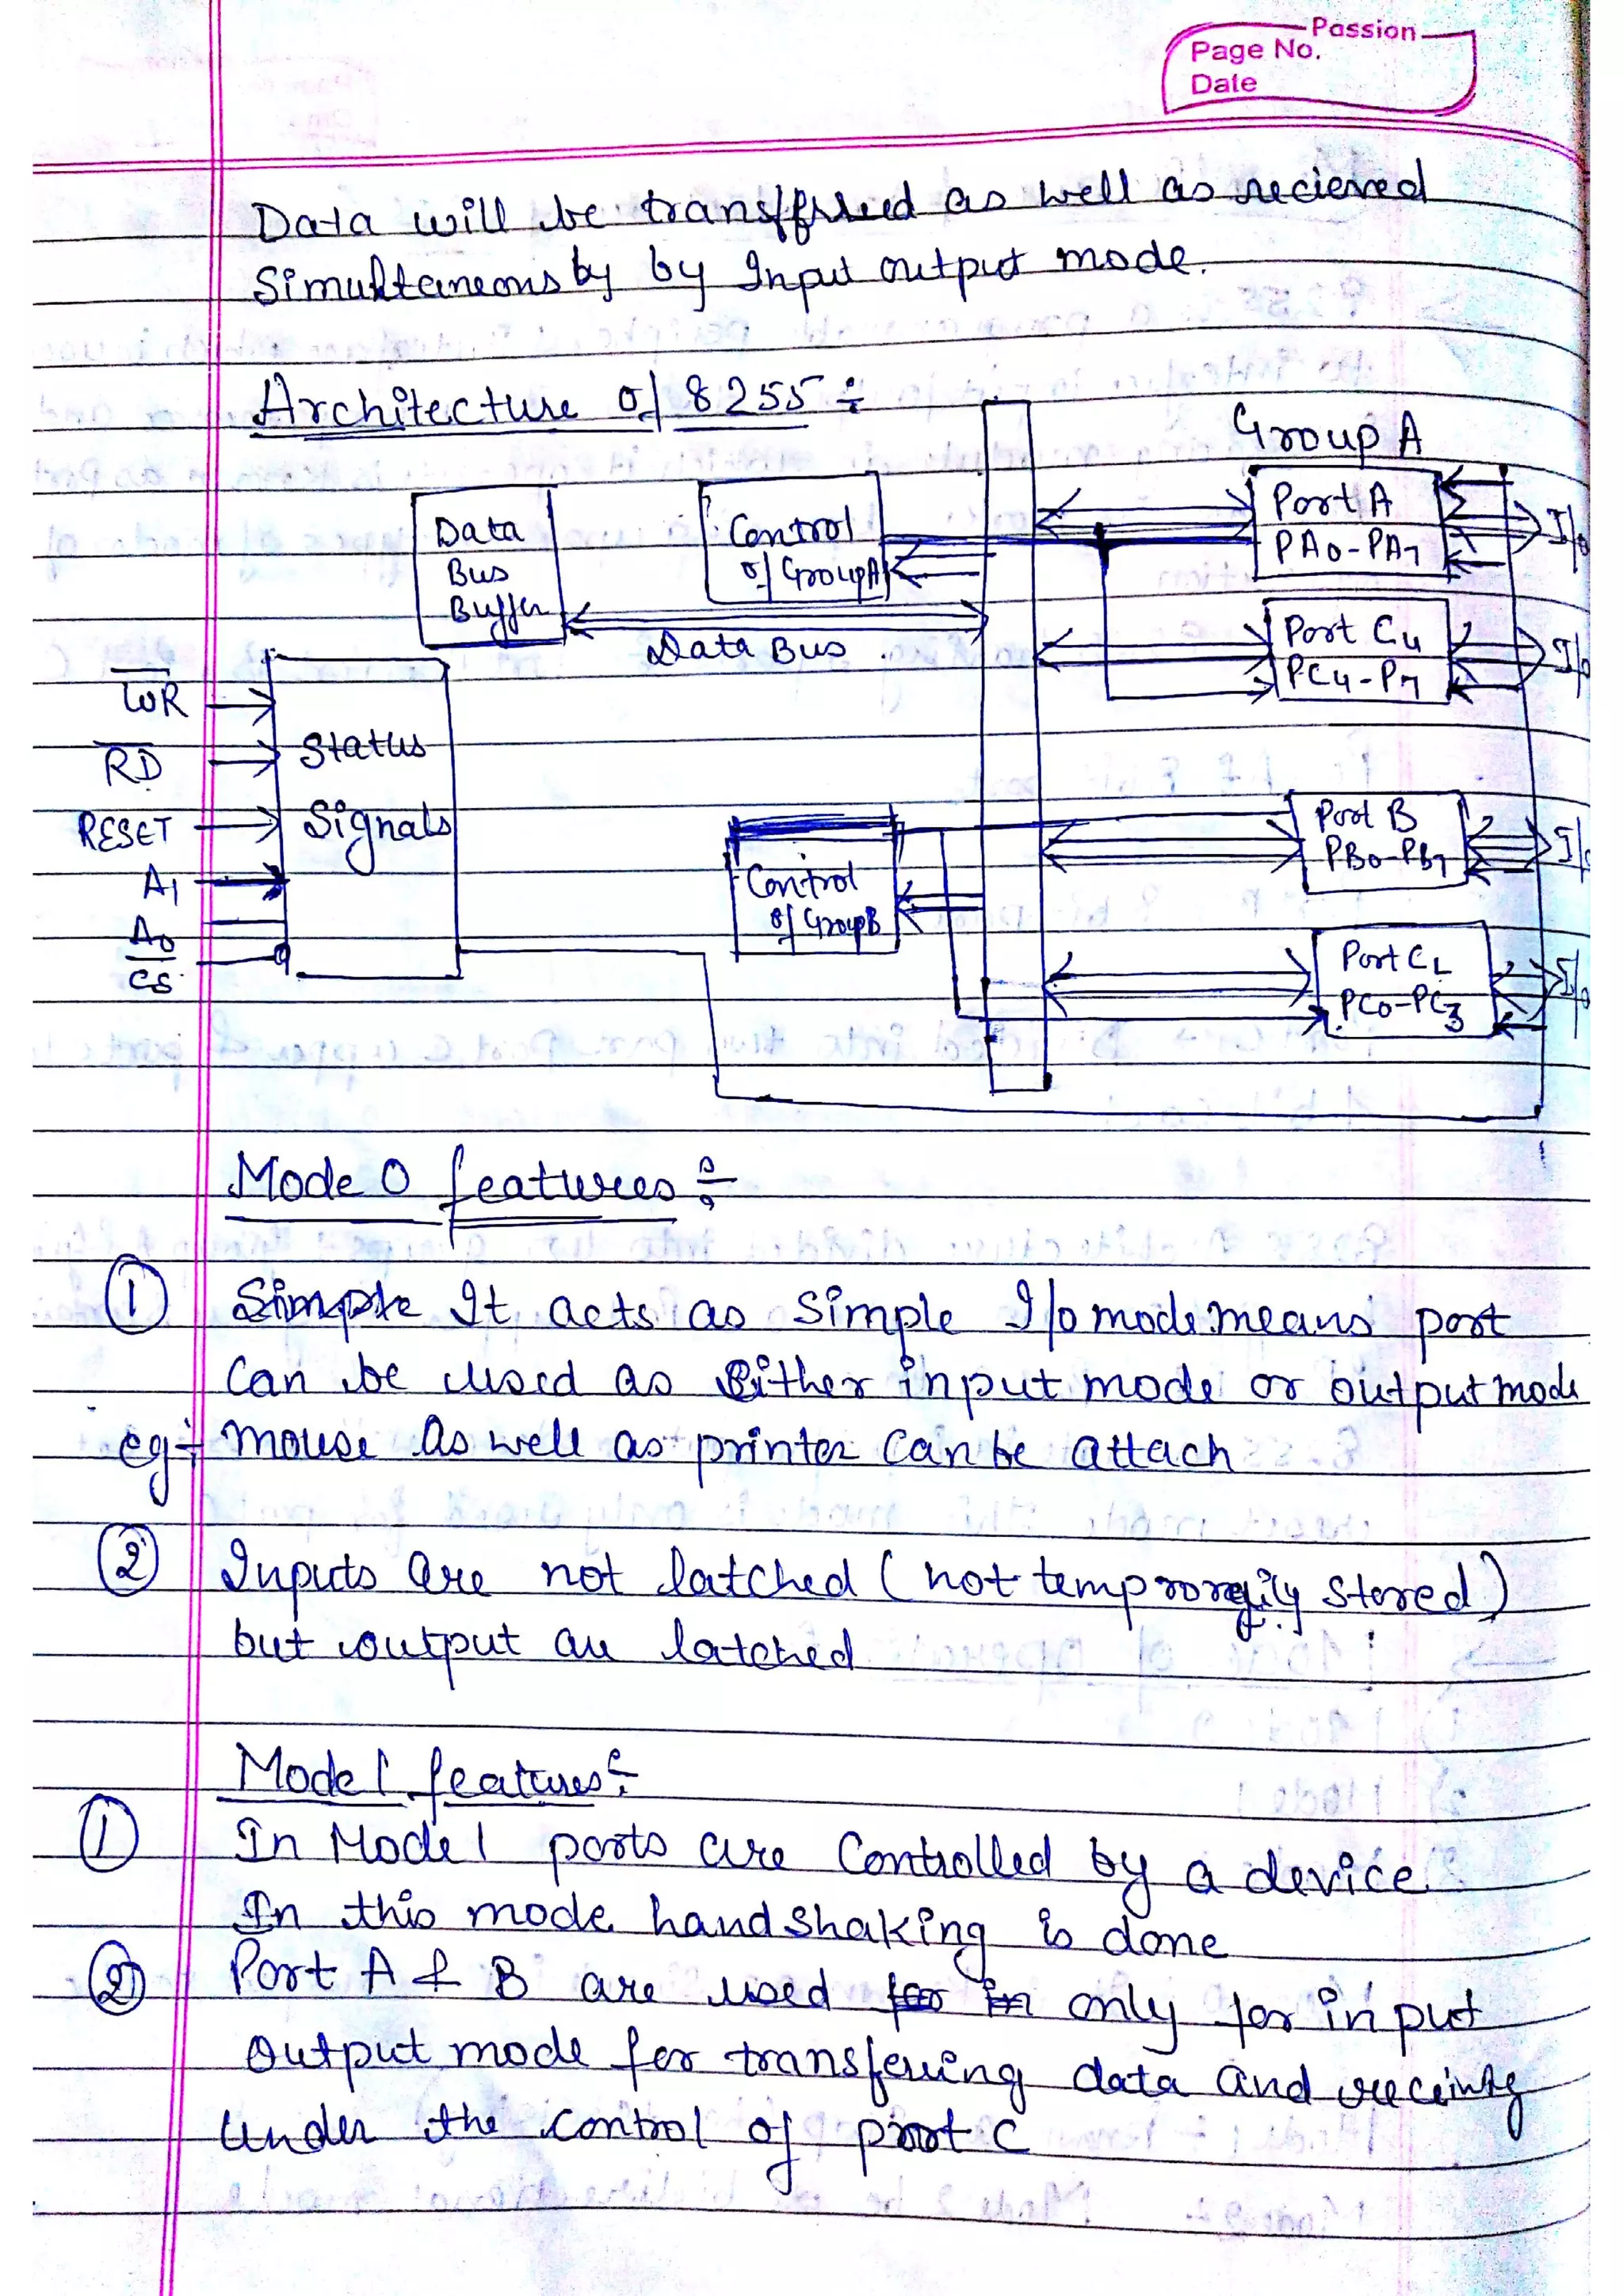 Passion
Page No.
Date
Data will be transfered as well as recieved
Simultaneously by Input output mode.
Architecture of 8255 ÷
Group A
Data
Bus
Buffer
Control
of Group A
Port A
PA0-PA7
I/o
Data Bus
Port CU
PC4-P7
I/o
WR
RD
RESET
A1
A0
CS
Status
Signals
Control
of Group B
Port B
PB0-PB7
I/o
Port CL
PC0-PC3
I/o
Mode 0 features ÷
① Simple It acts as Simple I/o mode. means port
Can be used as Either input mode or output mode
eg ÷ mouse as well as printer can be attach
② Inputs are not latched (not temprorarily stored)
but output are latched
Mode 1 features ÷
① In Mode 1 ports are Controlled by a device
In this mode handshaking is done
② Port A & B are used for in only for input
Output mode for transfering data and receiving
under the control of port C